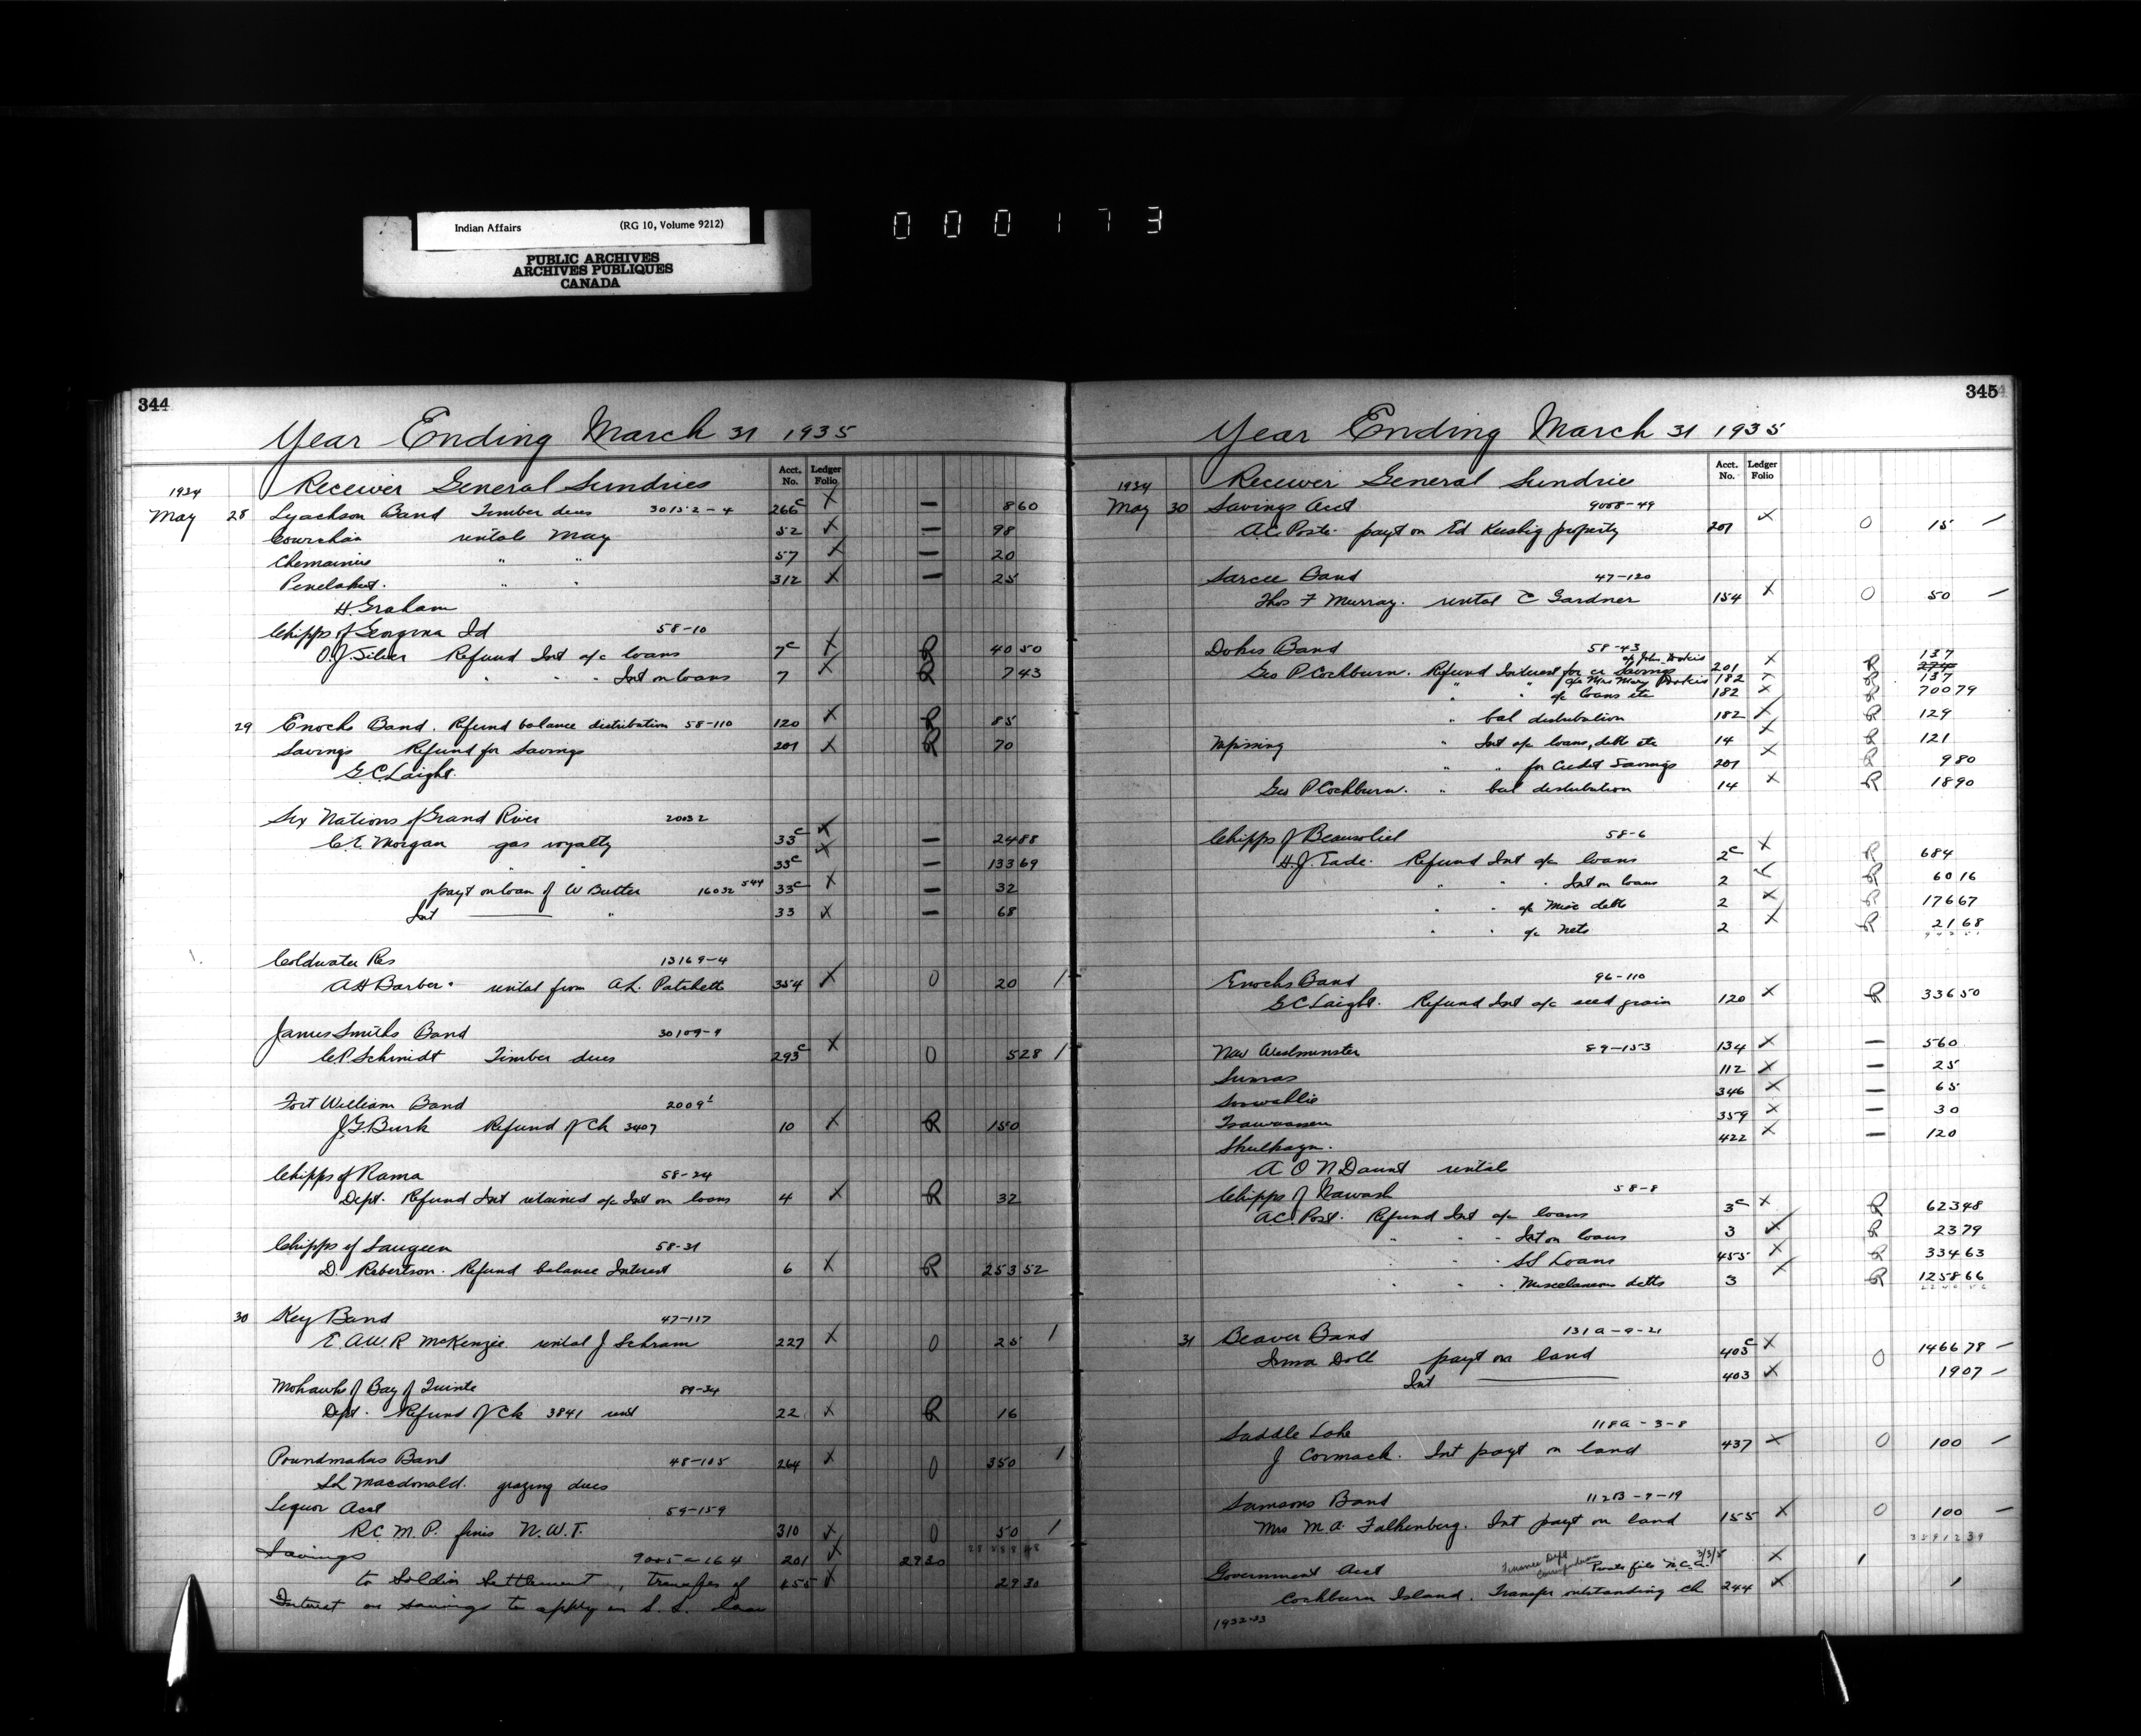 Indian Affairs (RG 10, Volume 9212)
PUBLIC ARCHIVES
ARCHIVES PUBLIQUES
CANADA
000173
344
Year Ending March 31 1935
Acct. No. Ledger Folio
1934 Receiver General Sundries
May 28 Lyachson Band Timber dues 30152-4 266c X — 8 60
Cowichan rentals May 52 X — 98
Chemainus " " 57 X — 20
Penelakut. " " 312 X — 25
H Graham
Chipps of Georgina Id 58-10
O.J. Silver Refund Int a/c loans 7c X R 40 50
" " " Int on loans 7 X R 7 43
29 Enochs Band. Refund balance distribution 58-110 120 X R 85
Savings Refund for Savings 201 X R 70
G.C. Laight.
Six Nations of Grand River 20032
C.E. Morgan gas royalty 33c X — 24 88
" " 33c X — 133 69
payt on loan of W Butler 16032 544 33c X — 32
Int " 33 X — 68
Coldwater Res 13169-4
A H Barber. rental from A.L. Patchett 354 X 0 20 /
James Smiths Band 30109-9
C.P. Schmidt Timber dues 293c X 0 5 28 /
Fort William Band 2009
J.G. Burk Refund of Ch 3407 10 X R 1 50
Chipps of Rama 58-24
Dept. Refund Int retained a/c Int on loans 4 X R 32
Chipps of Saugeen 58-31
D. Robertson. Refund balance Interest 6 X R 253 52
30 Key Band 47-117
E. A.W.R McKenzie rental J Schram 227 X 0 25 /
Mohawks of Bay of Quinte 89-34
Dept. Refund of Ck 3841 rent 22 X R 16
Poundmakers Band 48-105 264 X 0 3 50 /
S.L. Macdonald. grazing dues
Liquor Acct 59-159
R.C.M.P. fines N.W.T. 310 X 0 50 /
Savings 9005-164 201 X 29 30
to Soldier Settlement, Transfer of 455 X 29 30
Interest on savings to apply on S.S. loan
345
Year Ending March 31 1935
Acct. No. Ledger Folio
1934 Receiver General Sundries
May 30 Savings Acct 9008-49
A.C. Poste. payt on Ed Keeshig property 201 X 0 15 —
Sarcee Band 47-120
Thos F Murray. rental C Gardner 154 X 0 50 —
Dokis Band 58-43
Geo P Cockburn. Refund Interest for cr Savings a/c John Dokis 201 X R 1 37
" " a/c Mrs Mary Dokis 182 X R 1 37
" " a/c loans etc 182 X R 700 79
" bal distribution 182 X R 1 29
Nipissing " Int a/c loans, debts etc 14 X R 1 21
" " for Credit Savings 201 X R 9 80
Geo P Cockburn. " bal distribution 14 X R 18 90
Chipps of Beausoliel 58-6
H.J. Eade. Refund Int a/c loans 2c X R 6 84
" " " Int on loans 2 X R 60 16
" " a/c Misc debts 2 X R 176 67
" " a/c Nets 2 X R 21 68
Enochs Band 96-110
G C Laight. Refund Int a/c seed grain 120 X R 336 50
New Westminster 89-153 134 X — 5 60
Sumas 112 X — 25
Soowahlie 346 X — 65
Tsawwassen 359 X — 30
Skulkayn. 422 X — 1 20
A O'N Daunt rental
Chipps of Nawash 58-8
A.C. Post. Refund Int a/c loans 3c X R 623 48
" " " Int on loans 3 X R 23 79
" " " SS Loans 455 X R 334 63
" " " Miscelaneous debts 3 X R 1258 66
31 Beaver Band 131A-9-21
Irma Doll payt on land 403c X 0 1466 78 —
Int 403 X 19 07 —
Saddle Lake 118A-3-8
J Cormack. Int payt on land 437 X 0 100 —
Samsons Band 112B-7-19
Mrs M.A. Falkenberg. Int payt on land 155 X 0 100 —
Government Acct Finance Dept Correspondence Private file N.C.C. 3/3/5 X /
Cockburn Island. Transfer outstanding ch 244 X /
1932-33